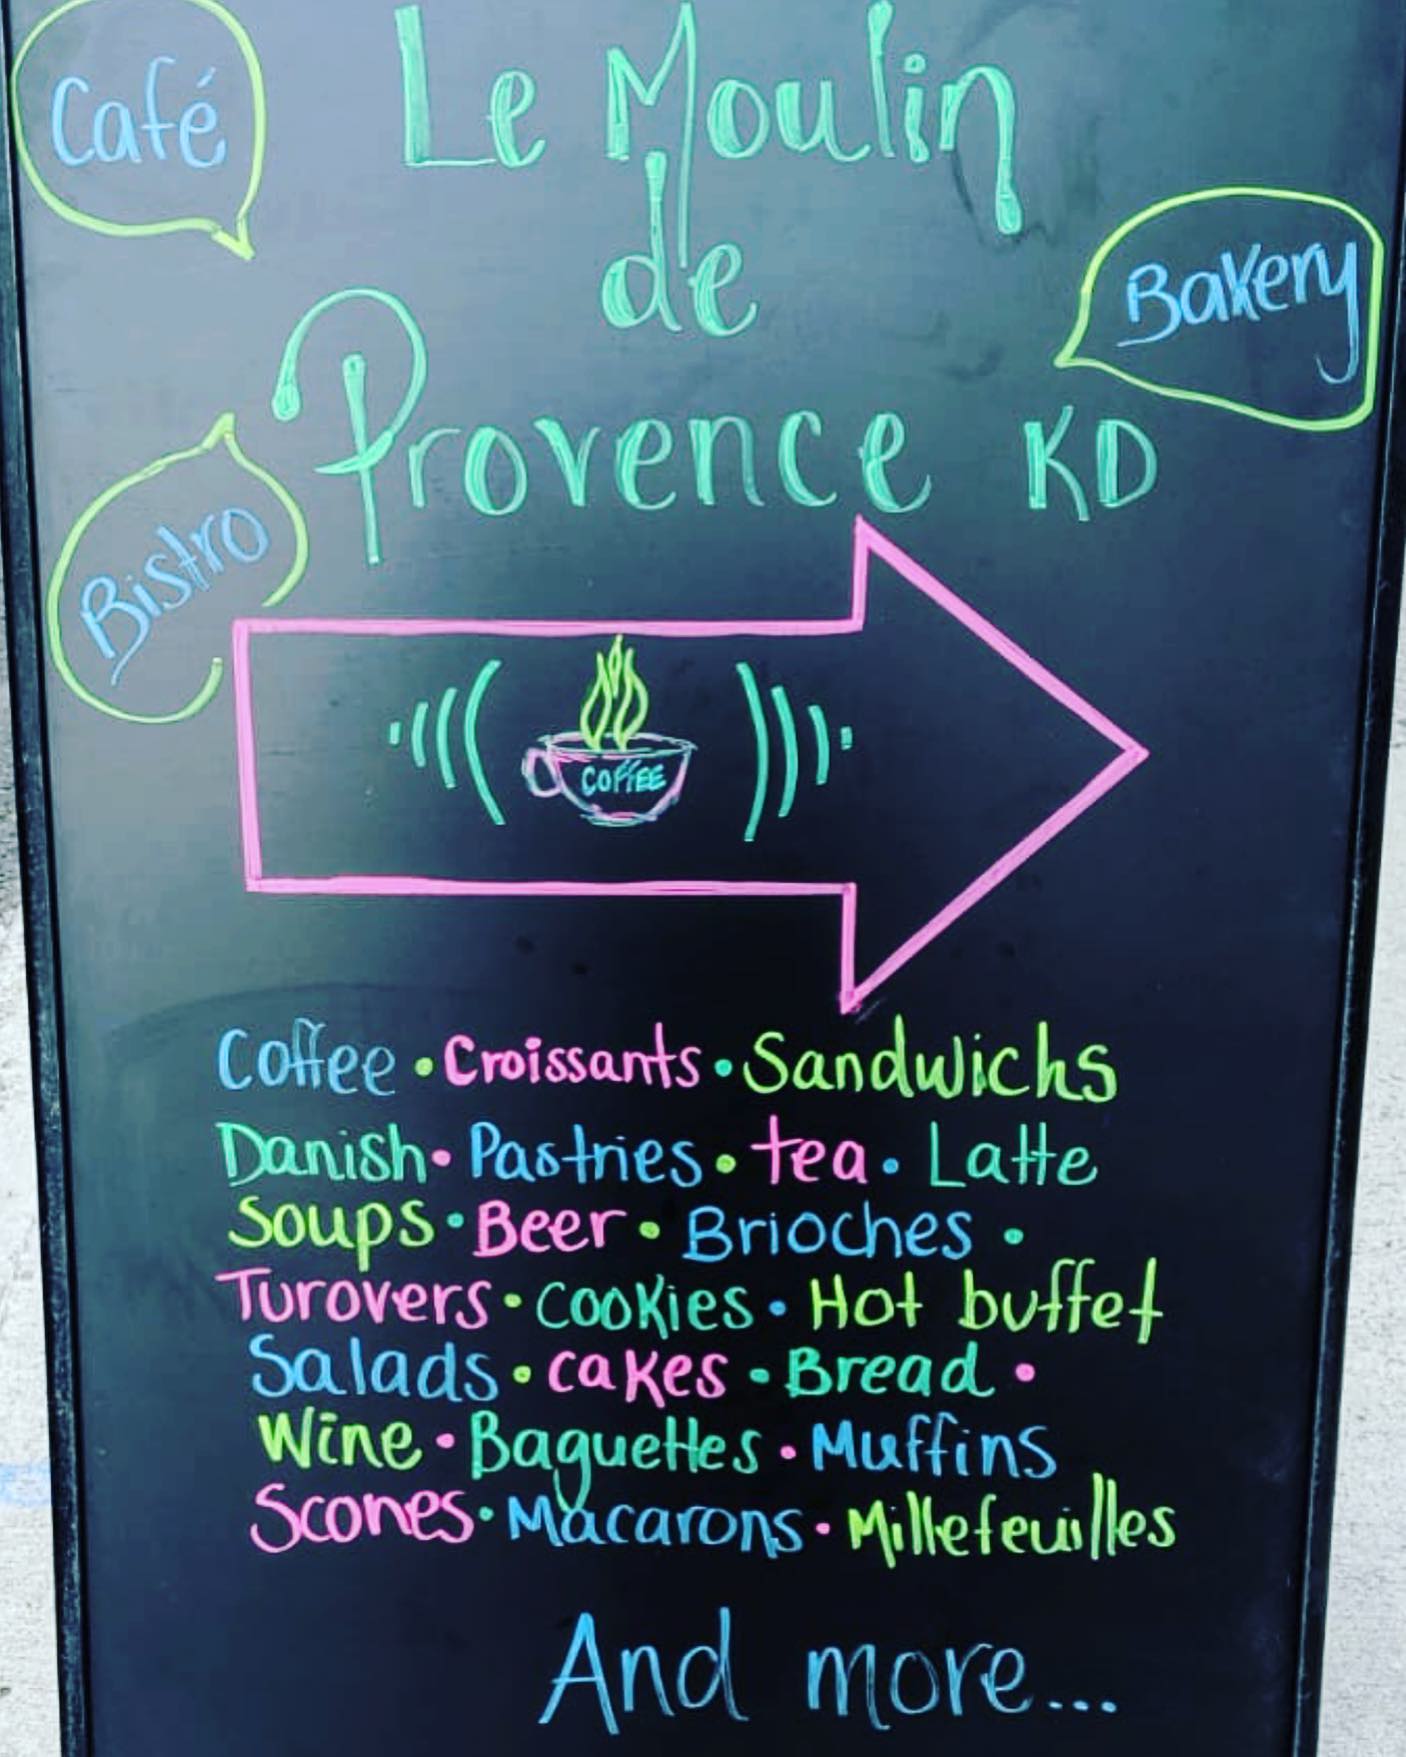 Café
Le Moulin
de
Bakery
Provence KD
Bistro
COFFEE
Coffee • Croissants • Sandwichs
Danish • Pastries • tea • Latte
Soups • Beer • Brioches •
Turovers • Cookies • Hot buffet
Salads • cakes • Bread •
Wine • Baguettes • Muffins
Scones • Macarons • Millefeuilles
And more...